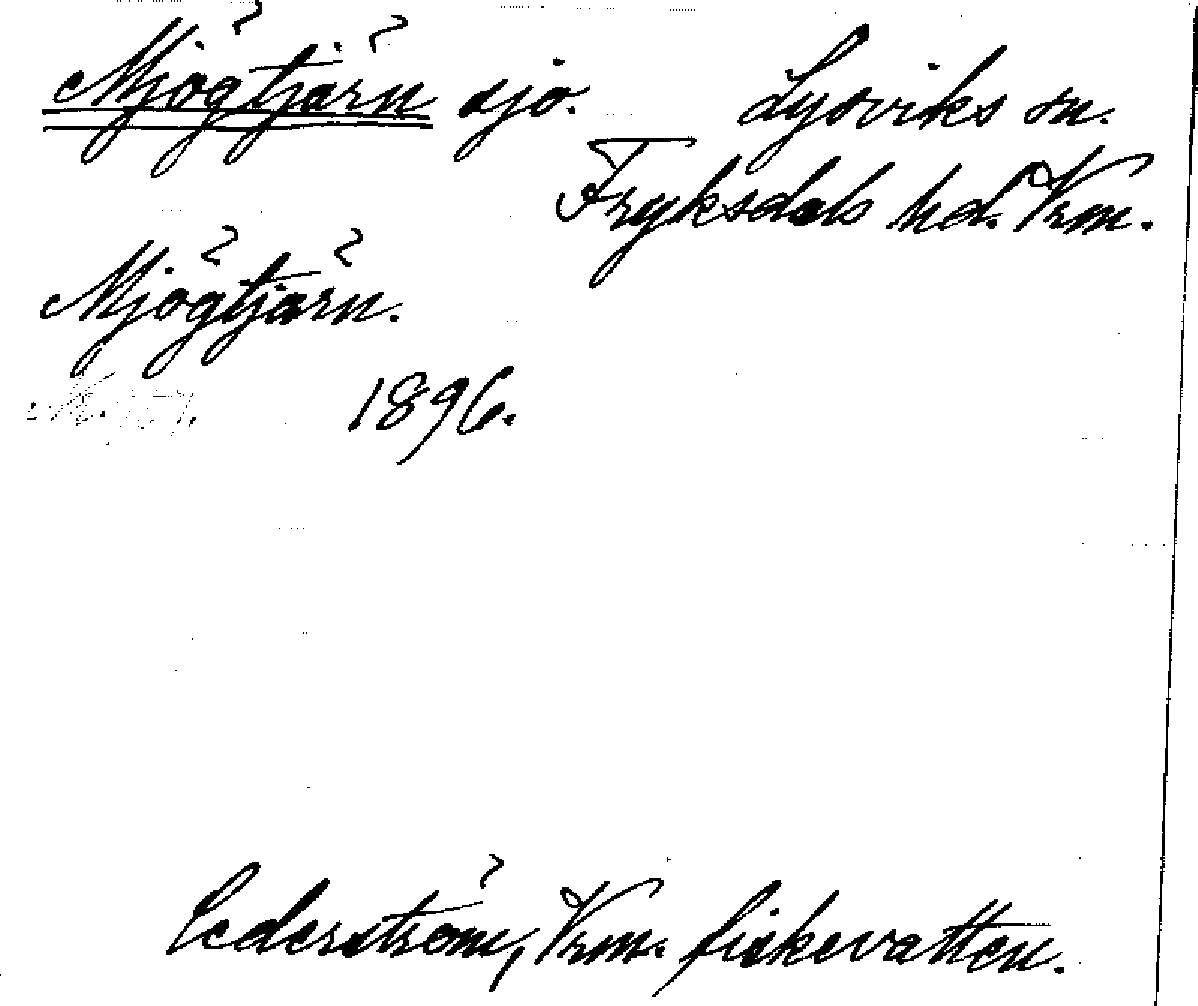 Mjögtjärn sjö. Lysviks sn.
Fryksdals hd. Vrm.
Mjögtjärn.
1896.
Cederström, Vrm. fiskevatten.